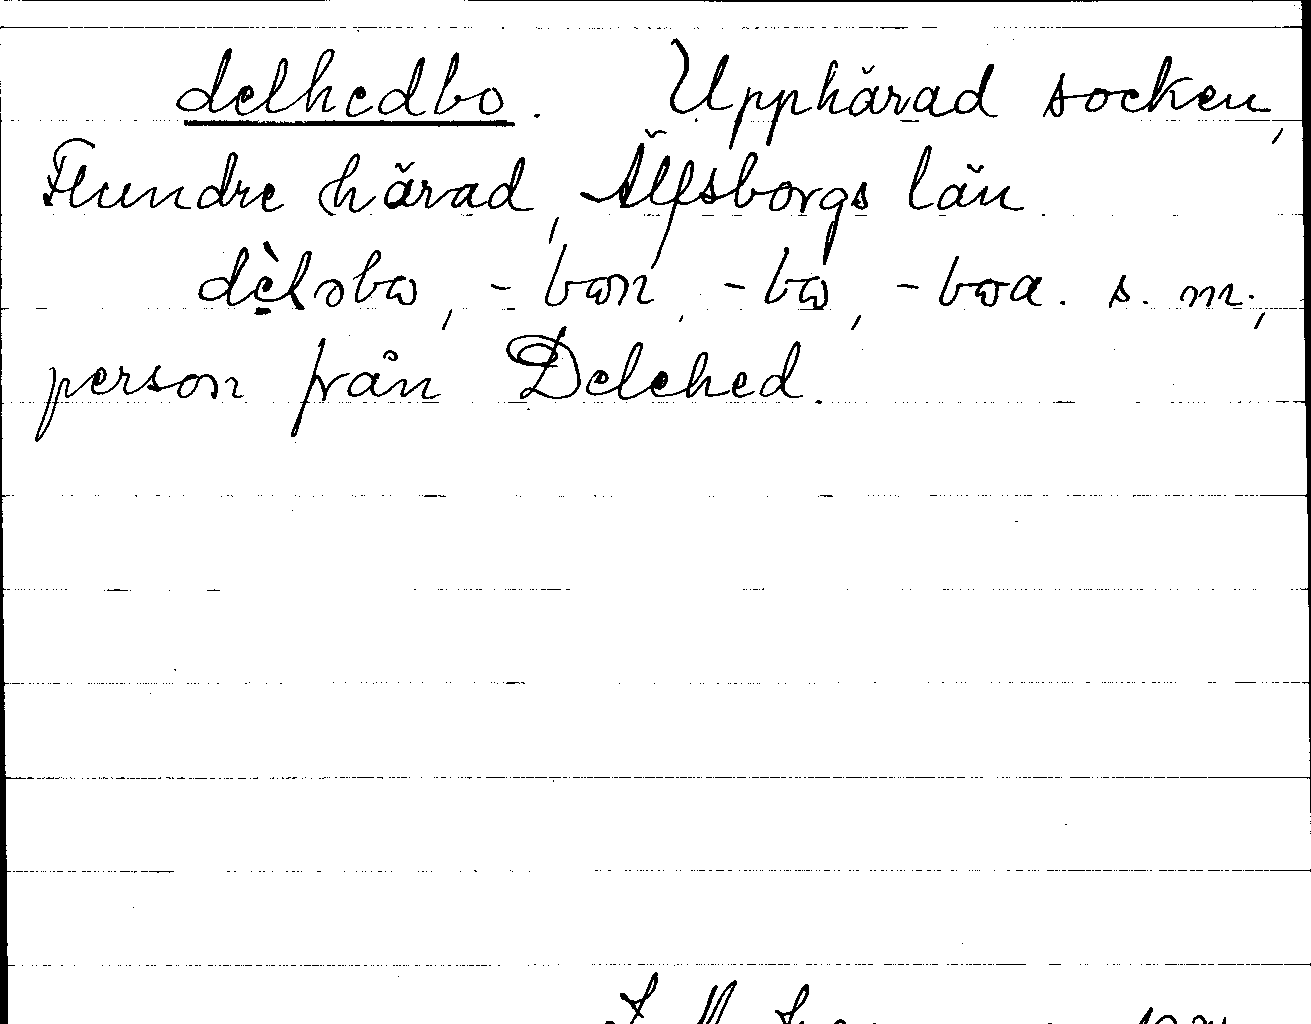 delhedbo. Upphärad socken,
Flundre härad, Älfsborgs län
dè̱lsbɷ, -bɷn, -bɷ, -bɷa. s. m.,
person från Delehed.